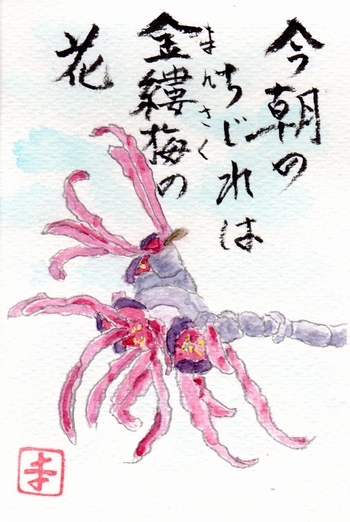 今朝の
ちじれは
金縷梅の
まんさく
花